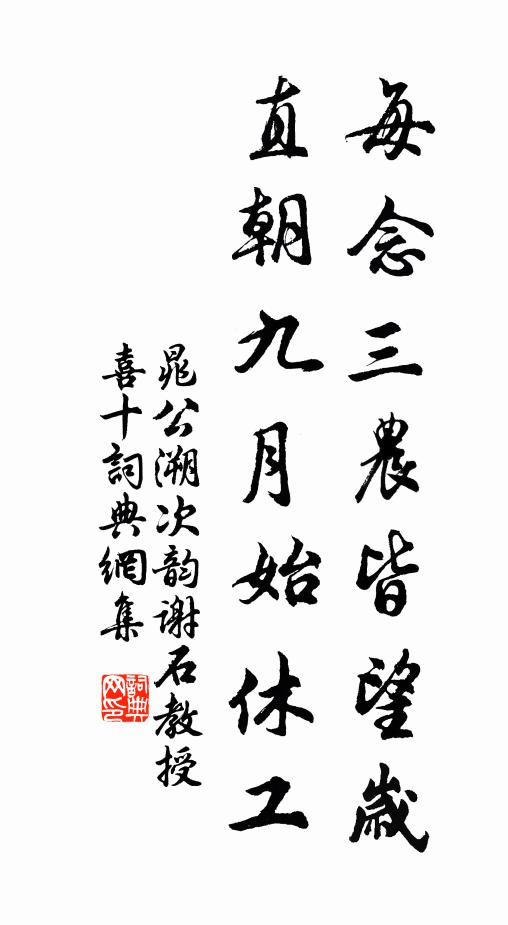 每念三農皆望歲
直朝九月始休工
晁公溯次韵謝石教授
喜十詞典網集
詞典网印